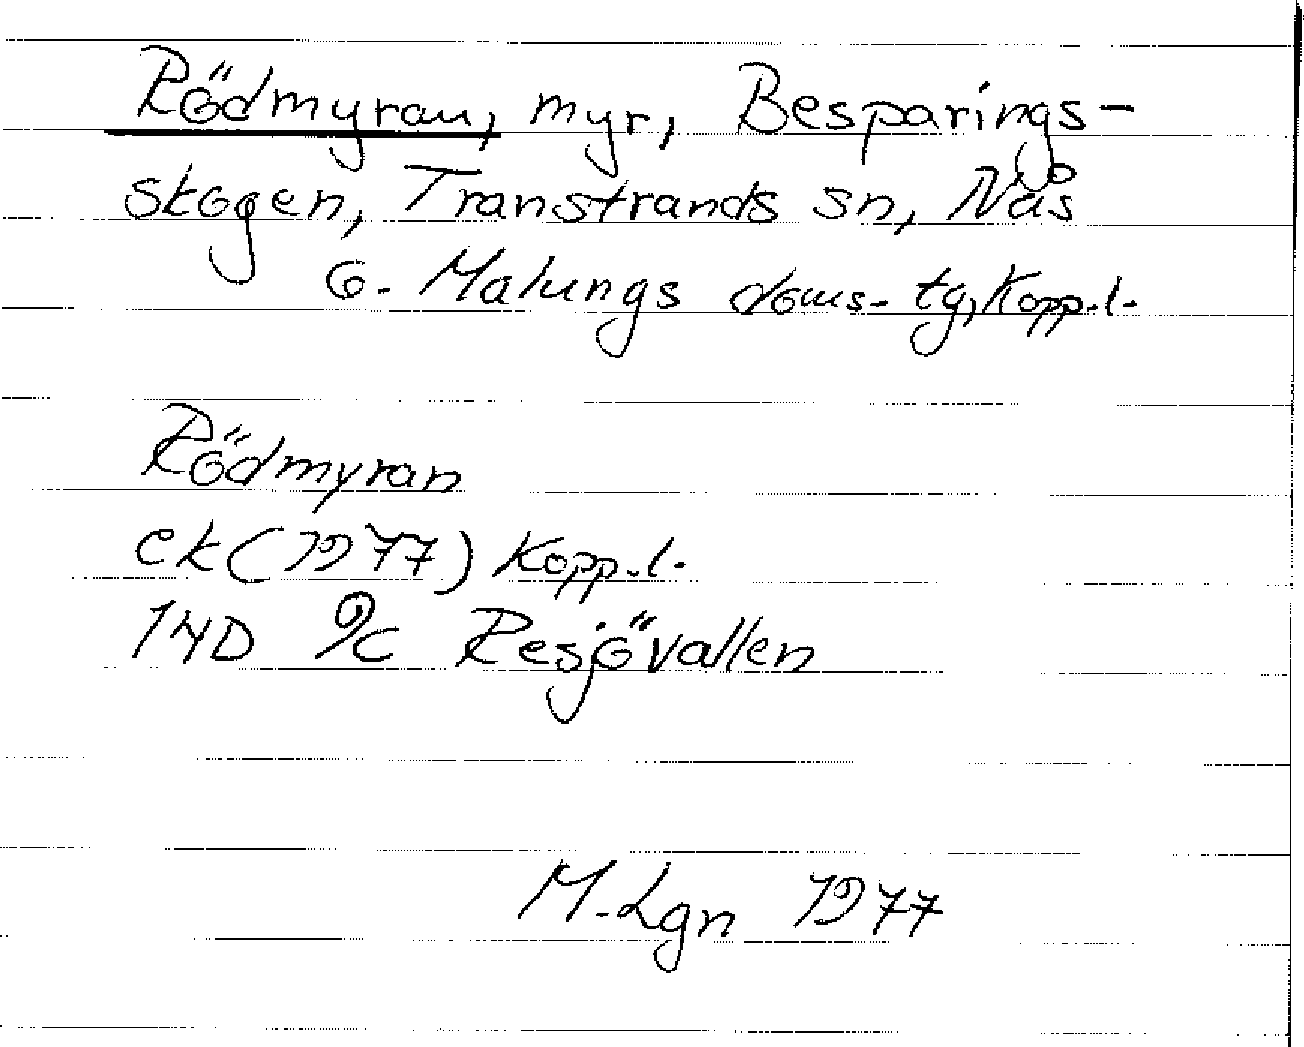 Rödmyran, myr, Besparings-
skogen, Transtrands sn, Nås
o. Malungs doms- tg, Kopp.l.
Rödmyran
ek (1977) Kopp.l.
14D 9c Resjövallen
M.Lgn 1977